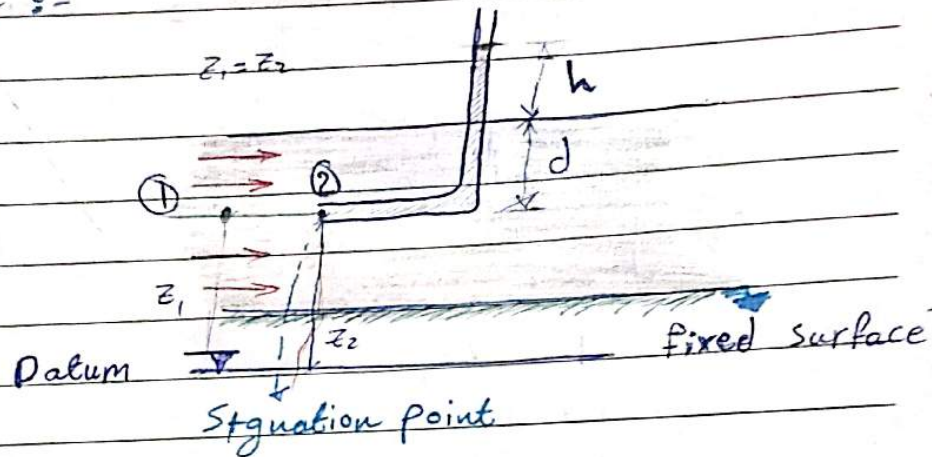 Z₁ = Z₂
h
d
①
②
Z₁
Z₂
fixed surface
Datum
Stgnation point